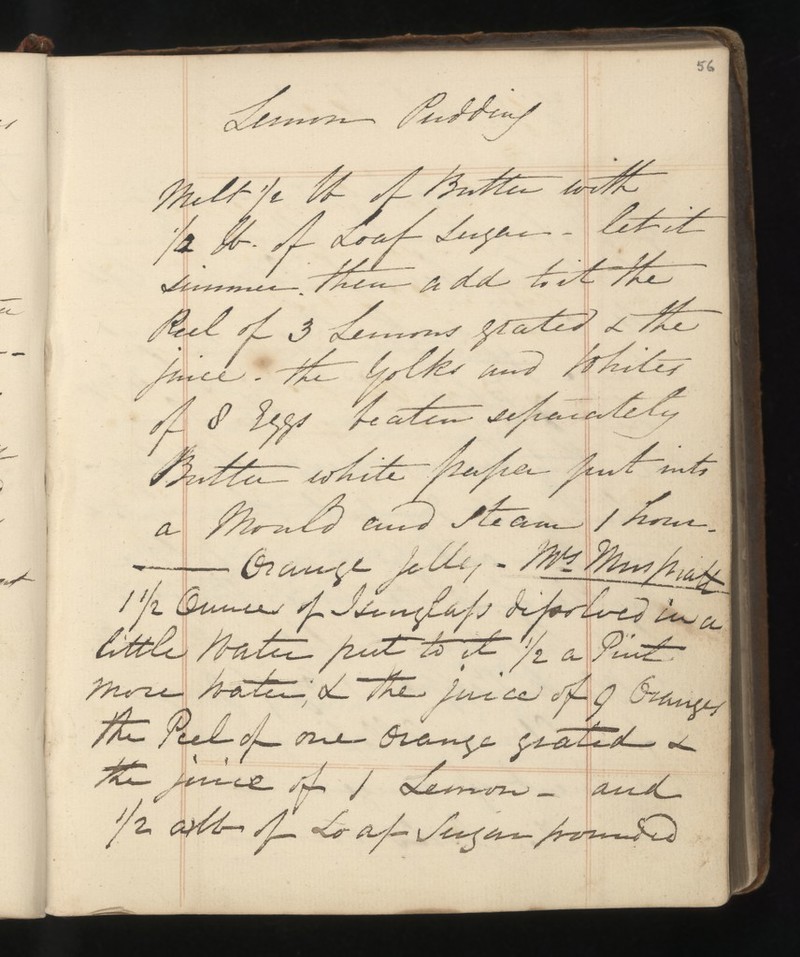 56
Lemon Pudding
Melt 1/2 lb of Butter with
1/2 lb. of Loaf Sugar - let it
simmer. then add to it the
Peel of 3 Lemons grated & the
juice - the Yolks and Whites
of 8 Eggs beaten separately
Butter white paper put into
a Mould and steam 1 hour.
Orange Jelly - Mrs Muspratt
1 1/2 Ounces of Isinglass dissolved in a
little Water put to it 1/2 a Pint
more Water, & the juice of 9 Oranges
the Peel of one Orange grated &
the juice of 1 Lemon - and
1/2 a lb of Loaf Sugar pounded